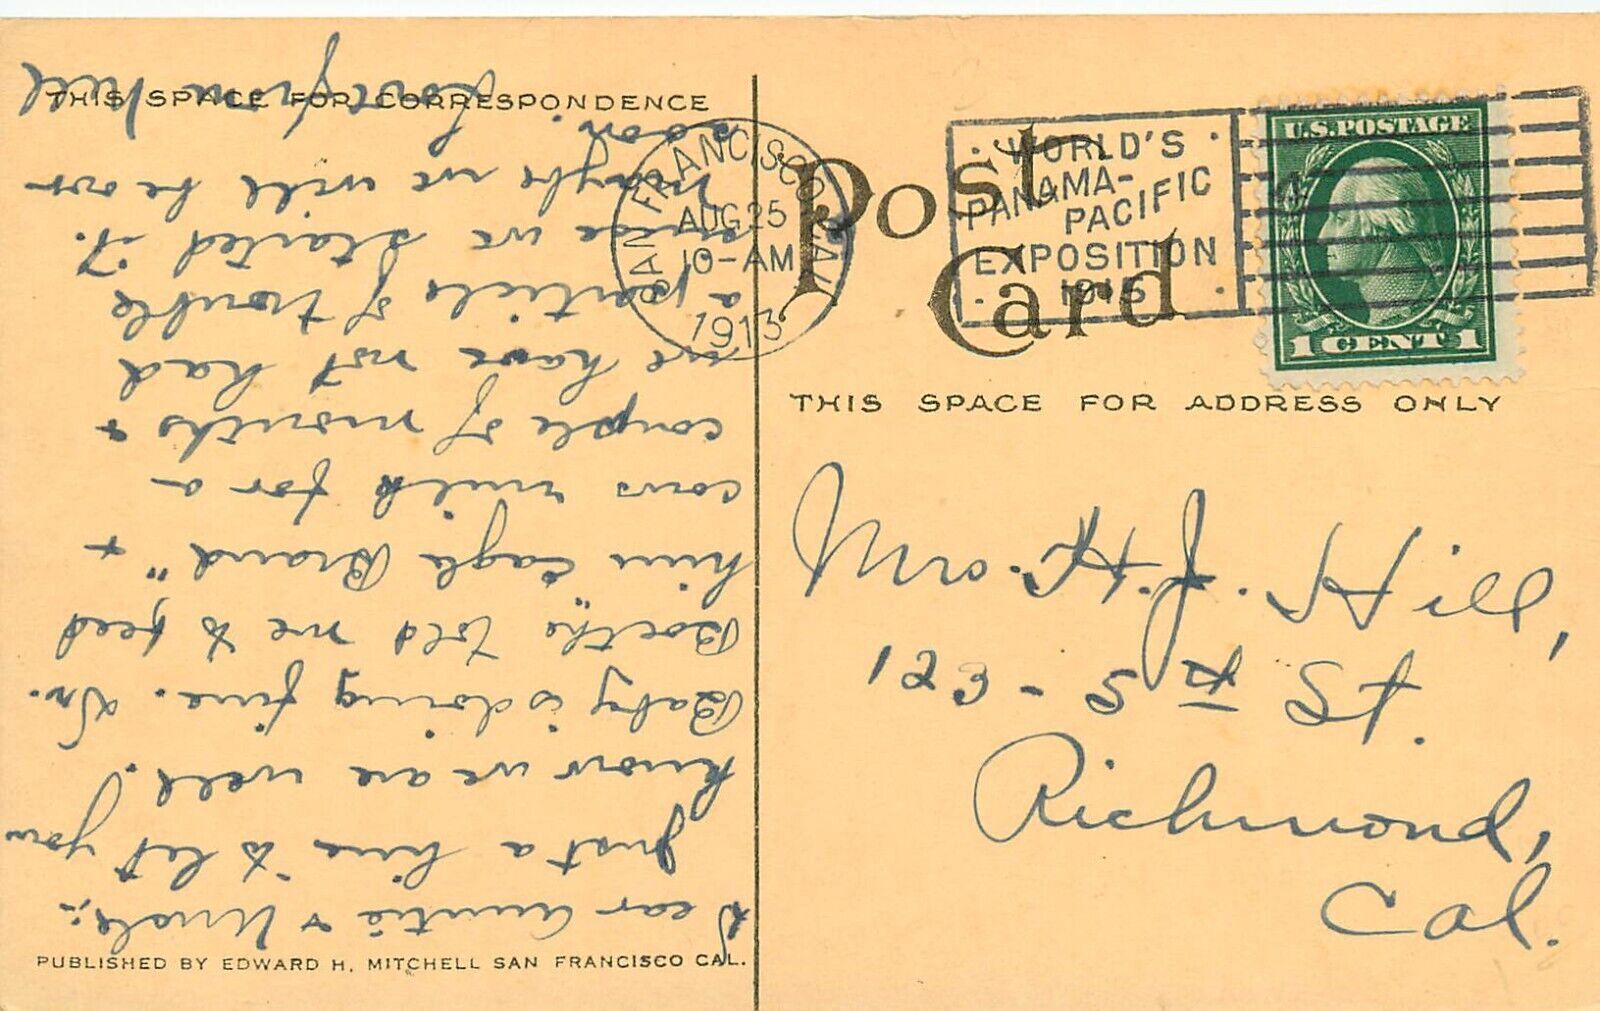 THIS SPACE FOR CORRESPONDENCE
Post
Card
SAN FRANCISCO, CAL.
AUG 25
10-AM
1913
WORLD'S
PANAMA-
PACIFIC
EXPOSITION
1915
U.S. POSTAGE
1 CENT 1
THIS SPACE FOR ADDRESS ONLY
Mr. H. J. Hill,
123 - 5th St.
Richmond,
Cal.
Dear Auntie & Uncle;-
Just a line to let you
know we are well.
Baby is doing fine. Dr.
Boethe told me to feed
him "Eagle Brand" &
cows milk for a
couple of months &
we have not had
a particle of trouble
since we started it.
Maybe we will be over
soon.
Love from
PUBLISHED BY EDWARD H. MITCHELL SAN FRANCISCO CAL.